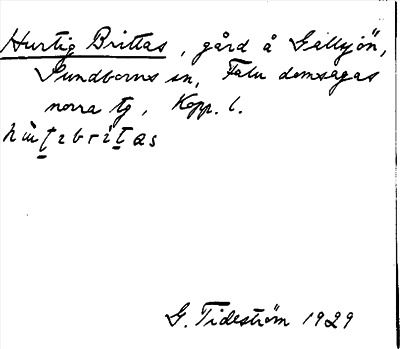 Hurtig Brittas, gård å Gällsjön,
Sundborns sn, Falu domsagas
norra tg, Kopp. l.
G. Tideström 1929